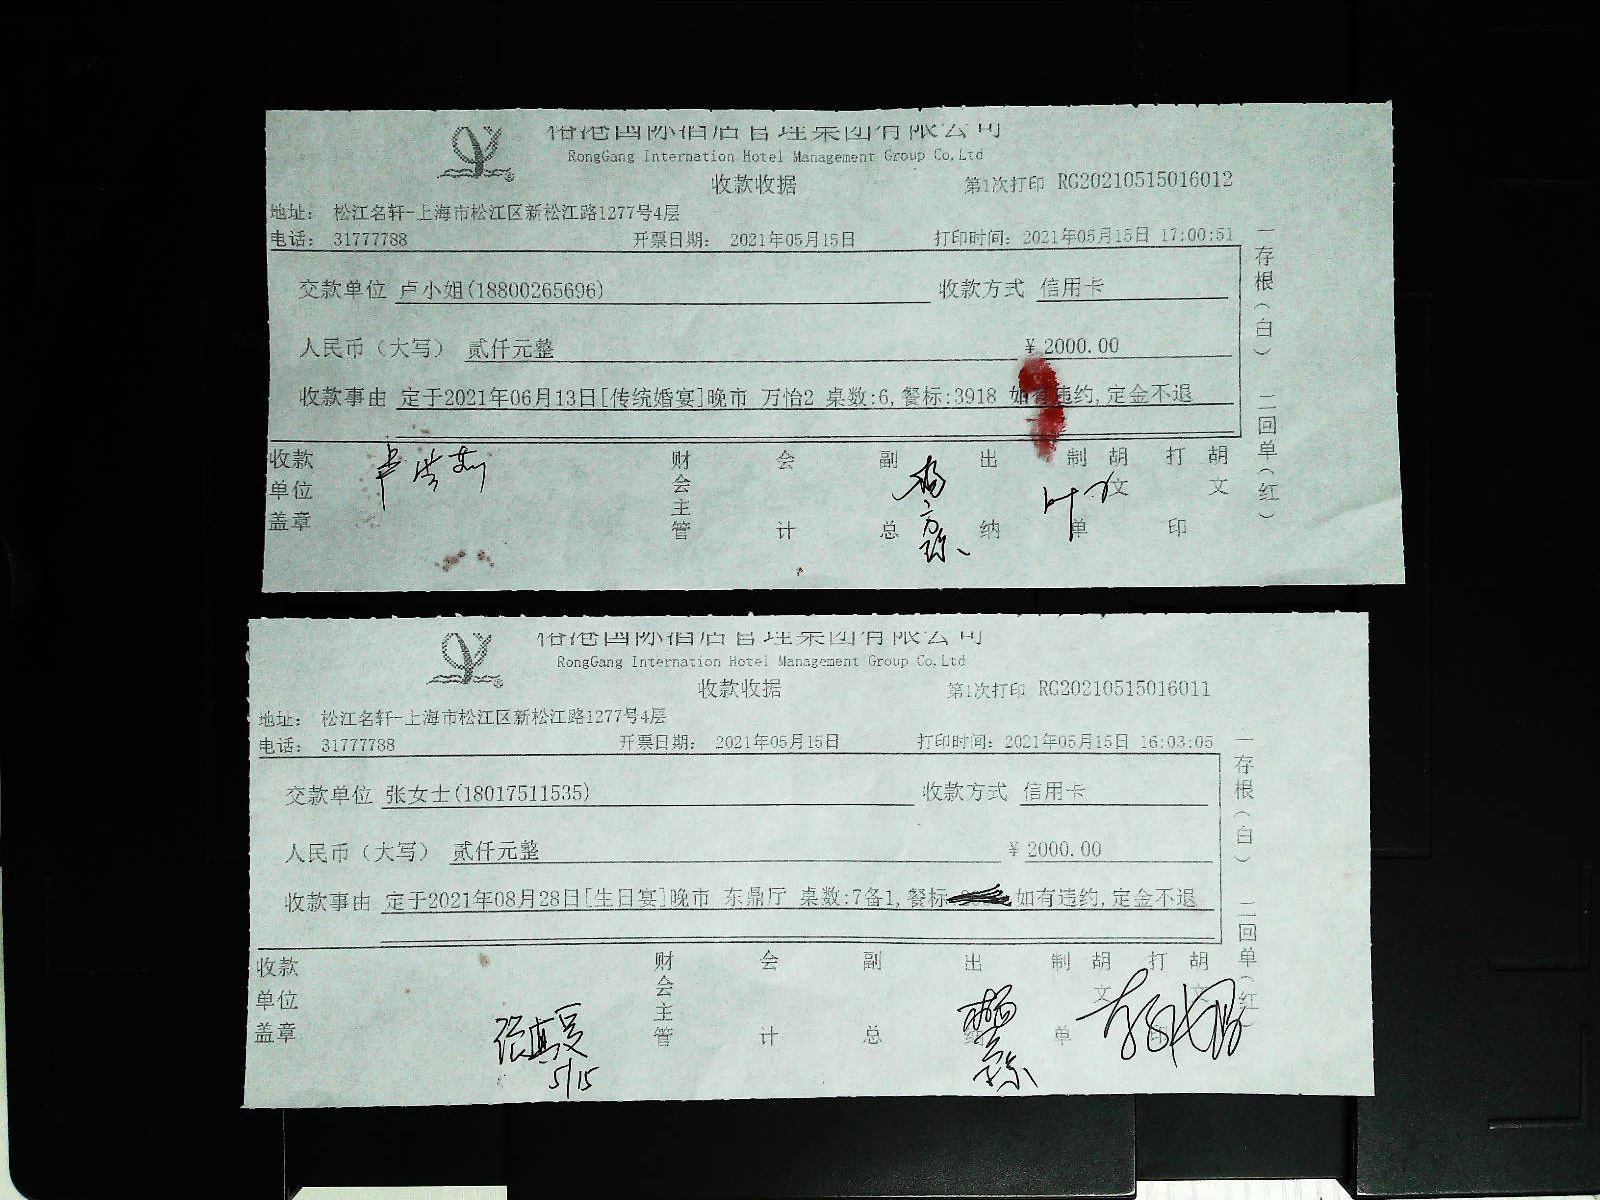 港国际酒店管理集团有限公司
RongGang Internation Hotel Management Group Co,Ltd
收款收据 第1次打印 RG20210515016012
地址： 松江名轩-上海市松江区新松江路1277号4层
电话： 31777788 开票日期： 2021年05月15日 打印时间：2021年05月15日 17:00:51
交款单位 卢小姐(18800265696) 收款方式 信用卡
人民币（大写） 贰仟元整 ¥ 2000.00
收款事由 定于2021年06月13日[传统婚宴]晚市 万怡2 桌数:6,餐标:3918 如有违约,定金不退
一存根（白） 二回单（红）
收款单位盖章 财会主管 会计 副总 出纳 制单 胡文 打印 胡文
港国际酒店管理集团有限公司
RongGang Internation Hotel Management Group Co,Ltd
收款收据 第1次打印 RG20210515016011
地址： 松江名轩-上海市松江区新松江路1277号4层
电话： 31777788 开票日期： 2021年05月15日 打印时间：2021年05月15日 16:03:05
交款单位 张女士(18017511535) 收款方式 信用卡
人民币（大写） 贰仟元整 ¥ 2000.00
收款事由 定于2021年08月28日[生日宴]晚市 东鼎厅 桌数:7备1,餐标 如有违约,定金不退
一存根（白） 二回单（红）
收款单位盖章 财会主管 会计 副总 出纳 制单 胡文 打印 胡
5/15